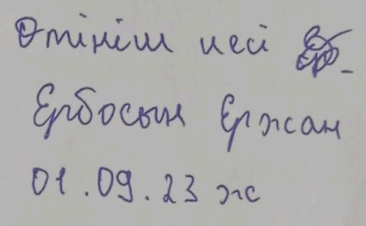 Өтініш иесі
Ербосын Ержан
01.09.23 ж